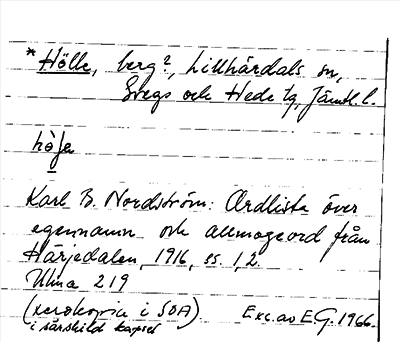 * Hölle, berg?, Lillhärdals sn,
Svegs och Hede tg, Jämtl. l.
Karl B. Nordström: Ordlista över
egennamn och allmogeord från
Härjedalen, 1916, ss. 1, 2.
Ulma 219
(xerokopia i SOA).
i särskild kapsel
Exc. av E.G. 1966.